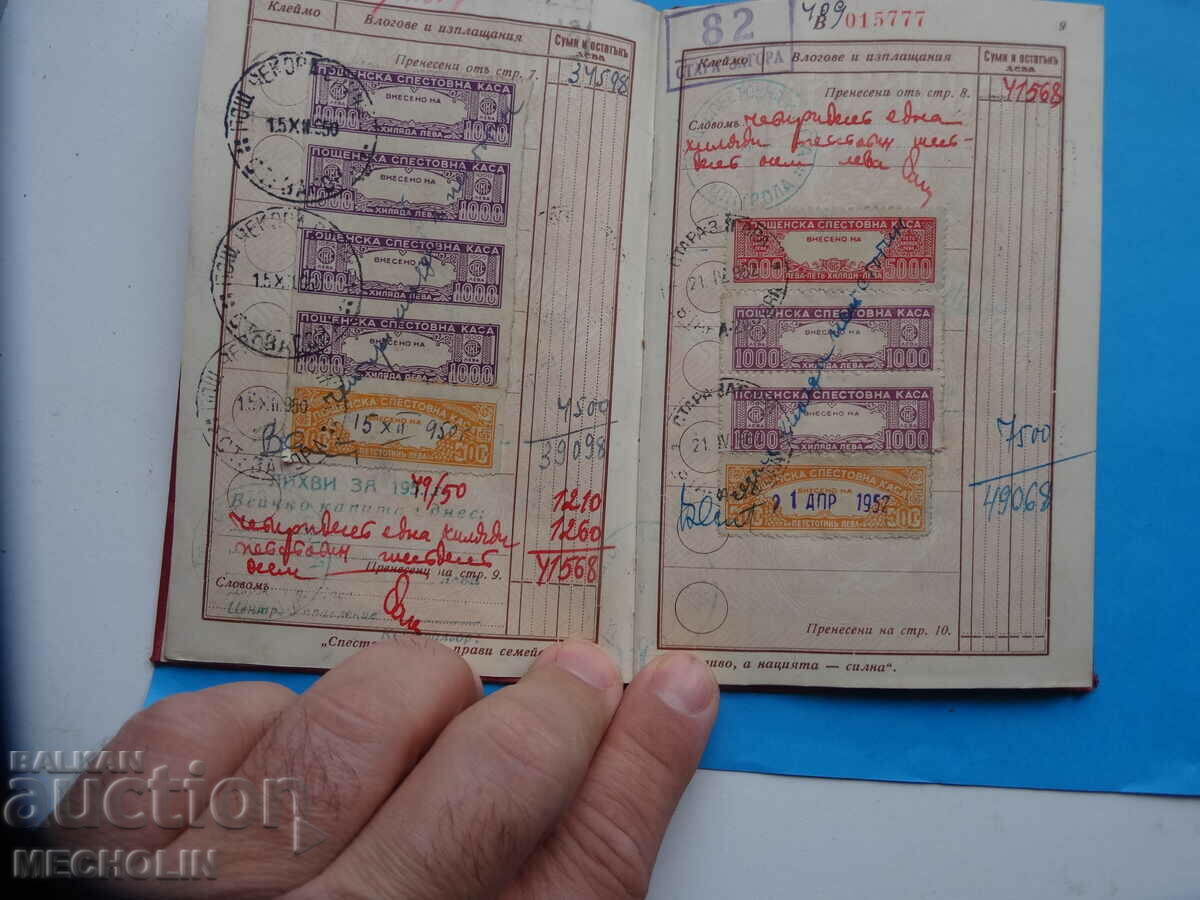 Клеймо
Влогове и изплащания
Суми и остатъкъ
лева
Пренесени отъ стр. 7.
34598
ПОЩЕНСКА СПЕСТОВНА КАСА
ВНЕСЕНО НА
1000 ХИЛЯДА ЛЕВА 1000
15 XII 950
ПОЩЕНСКА СПЕСТОВНА КАСА
ВНЕСЕНО НА
1000 ХИЛЯДА ЛЕВА 1000
ПОЩЕНСКА СПЕСТОВНА КАСА
ВНЕСЕНО НА
1000 ХИЛЯДА ЛЕВА 1000
ПОЩЕНСКА СПЕСТОВНА КАСА
ВНЕСЕНО НА
1000 ХИЛЯДА ЛЕВА 1000
ПОЩЕНСКА СПЕСТОВНА КАСА
ВНЕСЕНО НА
15 XII 950
4500
39098
ЛИХВИ ЗА 19
49/50
1210
Всичко капитал днес:
1260
четиридесет една хиляди
петстотин шестдесет
осем
Пренесени на стр. 9.
41568
Словомъ
Центр. Управление
„Спесто
прави семей
82
СТАРА ЗАГОРА
409
В 015777
9
Клеймо
Влогове и изплащания
Суми и остатъкъ
лева
Пренесени отъ стр. 8.
41568
Словомъ четиридесет една
хиляди петстотин шест-
десет осем лева
ПОЩЕНСКА СПЕСТОВНА КАСА
ВНЕСЕНО НА
5000 ЛЕВА-ПЕТЬ ХИЛЯДИ-ЛЕВА 5000
21 IV 952
ПОЩЕНСКА СПЕСТОВНА КАСА
ВНЕСЕНО НА
1000 ХИЛЯДА ЛЕВА 1000
ПОЩЕНСКА СПЕСТОВНА КАСА
ВНЕСЕНО НА
1000 ХИЛЯДА ЛЕВА 1000
7500
ПОЩЕНСКА СПЕСТОВНА КАСА
ВНЕСЕНО НА
21 АПР 1952
ПЕТСТОТИНЪ ЛЕВА
49068
Пренесени на стр. 10.
иво, а нацията — силна“.
BALKAN
auction
MECHOLIN